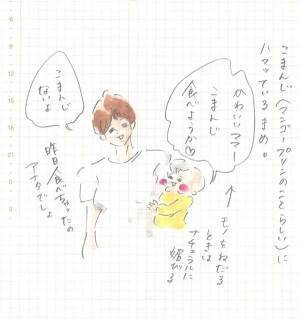 こまんじ(マンゴープリンのことらしい)に
ハマッているまめ。
かわいいママー
こまんじ
食べようか♡
↑モノをねだる
ときは
ナチュラルに
媚びる
こまんじ
ないよ
昨日食べちゃったの
アナタでしょ